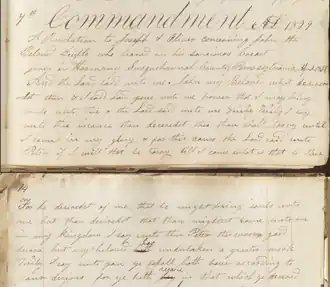 7th Commandment AD 1829
A Revelation to Joseph & Oliver concerning John the
Beloved Deciple who leaned on his saviours breast
given in Harmony Susquehannah County Pennsylvania
And the Lord said unto me John my Beloved what desirest
thou & I said Lord give unto me power that I may bring
souls unto thee & the Lord said unto me Verily Verily I say
unto thee because thou desiredst this thou shalt tarry until
I come in my glory & for this cause the Lord said unto
Peter if I will that he tarry till I come what is that to thee
14
For he desiredst of me that he might bring souls unto
me but thou desiredst that thou mightest come unto me
in my Kingdom I say unto thee Peter this was a good
desire but my beloved has undertaken a greater work
Verily I say unto you ye shall both have according to
your desires for ye both receive joy in that which ye desired